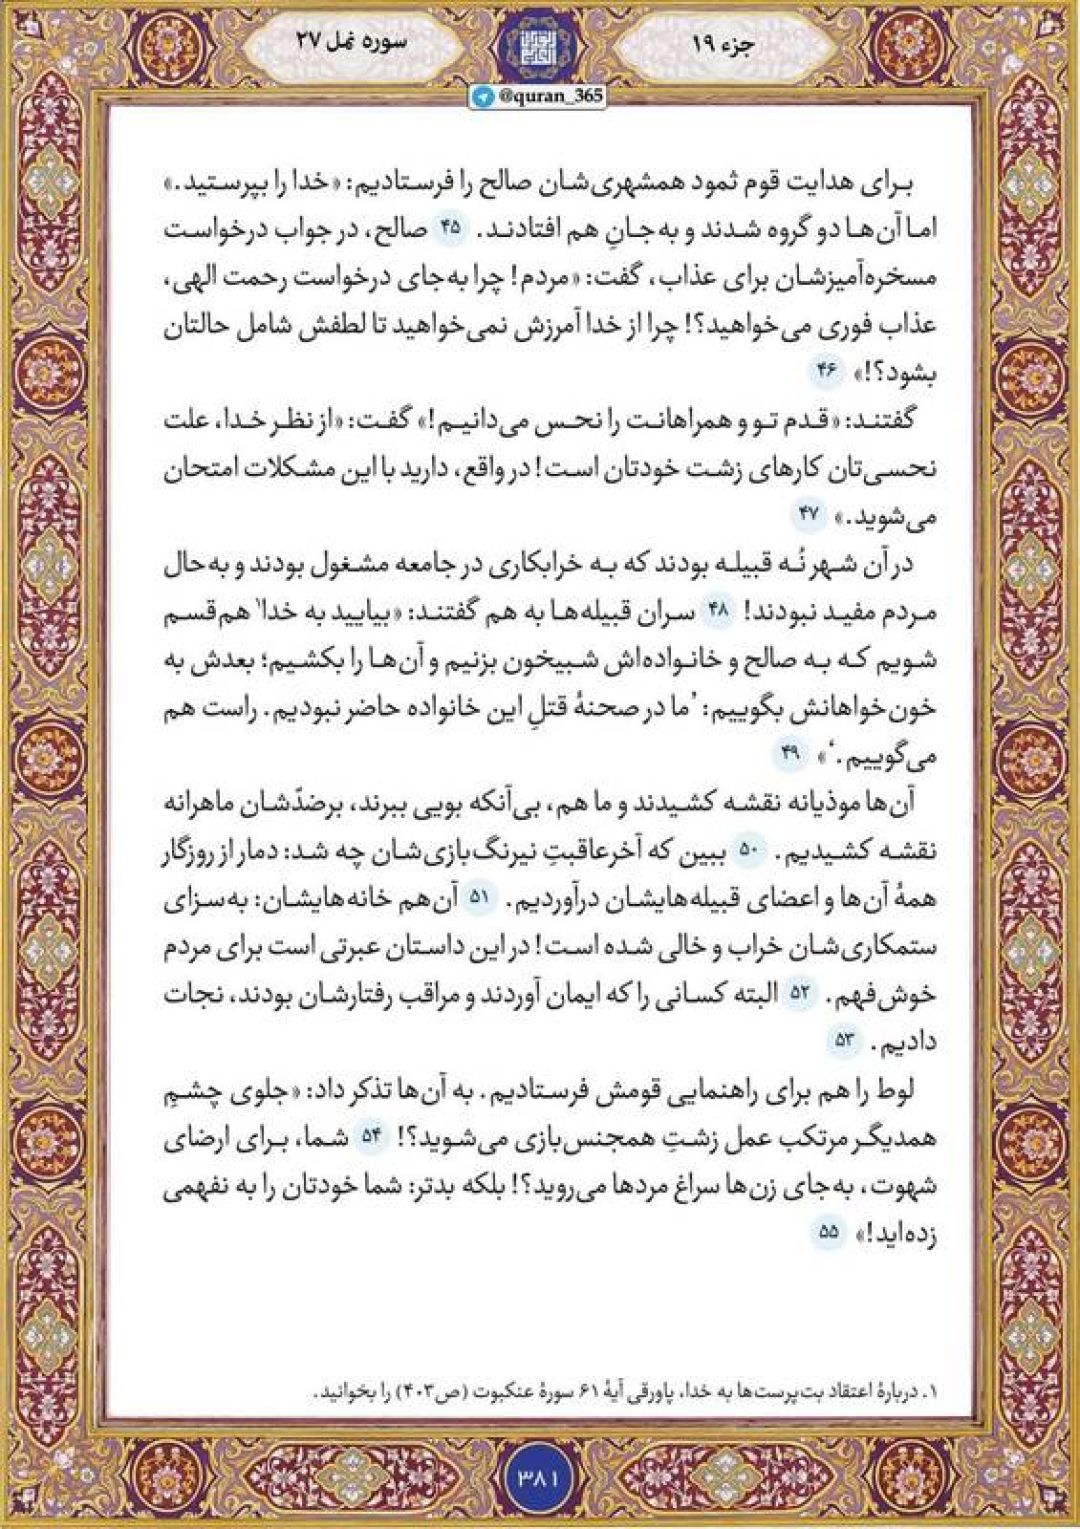 جزء ۱۹
سوره نمل ۲۷
@quran_365
برای هدایت قوم ثمود همشهری‌شان صالح را فرستادیم: «خدا را بپرستید.»
اما آن‌ها دو گروه شدند و به‌جانِ هم افتادند. ۴۵ صالح، در جواب درخواست
مسخره‌آمیزشان برای عذاب، گفت: «مردم! چرا به‌جای درخواست رحمت الهی،
عذاب فوری می‌خواهید؟! چرا از خدا آمرزش نمی‌خواهید تا لطفش شامل حالتان
بشود؟!» ۴۶
گفتند: «قدم تو و همراهانت را نحس می‌دانیم!» گفت: «از نظر خدا، علت
نحسی‌تان کارهای زشت خودتان است! در واقع، دارید با این مشکلات امتحان
می‌شوید.» ۴۷
در آن شهر نُه قبیله بودند که به خرابکاری در جامعه مشغول بودند و به‌حال
مردم مفید نبودند! ۴۸ سران قبیله‌ها به هم گفتند: «بیایید به خدا۱ هم‌قسم
شویم که به صالح و خانواده‌اش شبیخون بزنیم و آن‌ها را بکشیم؛ بعدش به
خون‌خواهانش بگوییم: ’ما در صحنهٔ قتلِ این خانواده حاضر نبودیم. راست هم
می‌گوییم.‘» ۴۹
آن‌ها موذیانه نقشه کشیدند و ما هم، بی‌آنکه بویی ببرند، برضدّشان ماهرانه
نقشه کشیدیم. ۵۰ ببین که آخرعاقبتِ نیرنگ‌بازی‌شان چه شد: دمار از روزگار
همهٔ آن‌ها و اعضای قبیله‌هایشان درآوردیم. ۵۱ آن‌هم خانه‌هایشان: به‌سزای
ستمکاری‌شان خراب و خالی شده است! در این داستان عبرتی است برای مردم
خوش‌فهم. ۵۲ البته کسانی را که ایمان آوردند و مراقب رفتارشان بودند، نجات
دادیم. ۵۳
لوط را هم برای راهنمایی قومش فرستادیم. به آن‌ها تذکر داد: «جلوی چشمِ
همدیگر مرتکب عمل زشتِ همجنس‌بازی می‌شوید؟! ۵۴ شما، برای ارضای
شهوت، به‌جای زن‌ها سراغ مردها می‌روید؟! بلکه بدتر: شما خودتان را به نفهمی
زده‌اید!» ۵۵
۱. دربارهٔ اعتقاد بت‌پرست‌ها به خدا، پاورقی آیهٔ ۶۱ سورهٔ عنکبوت (ص۴۰۳) را بخوانید.
۳۸۱